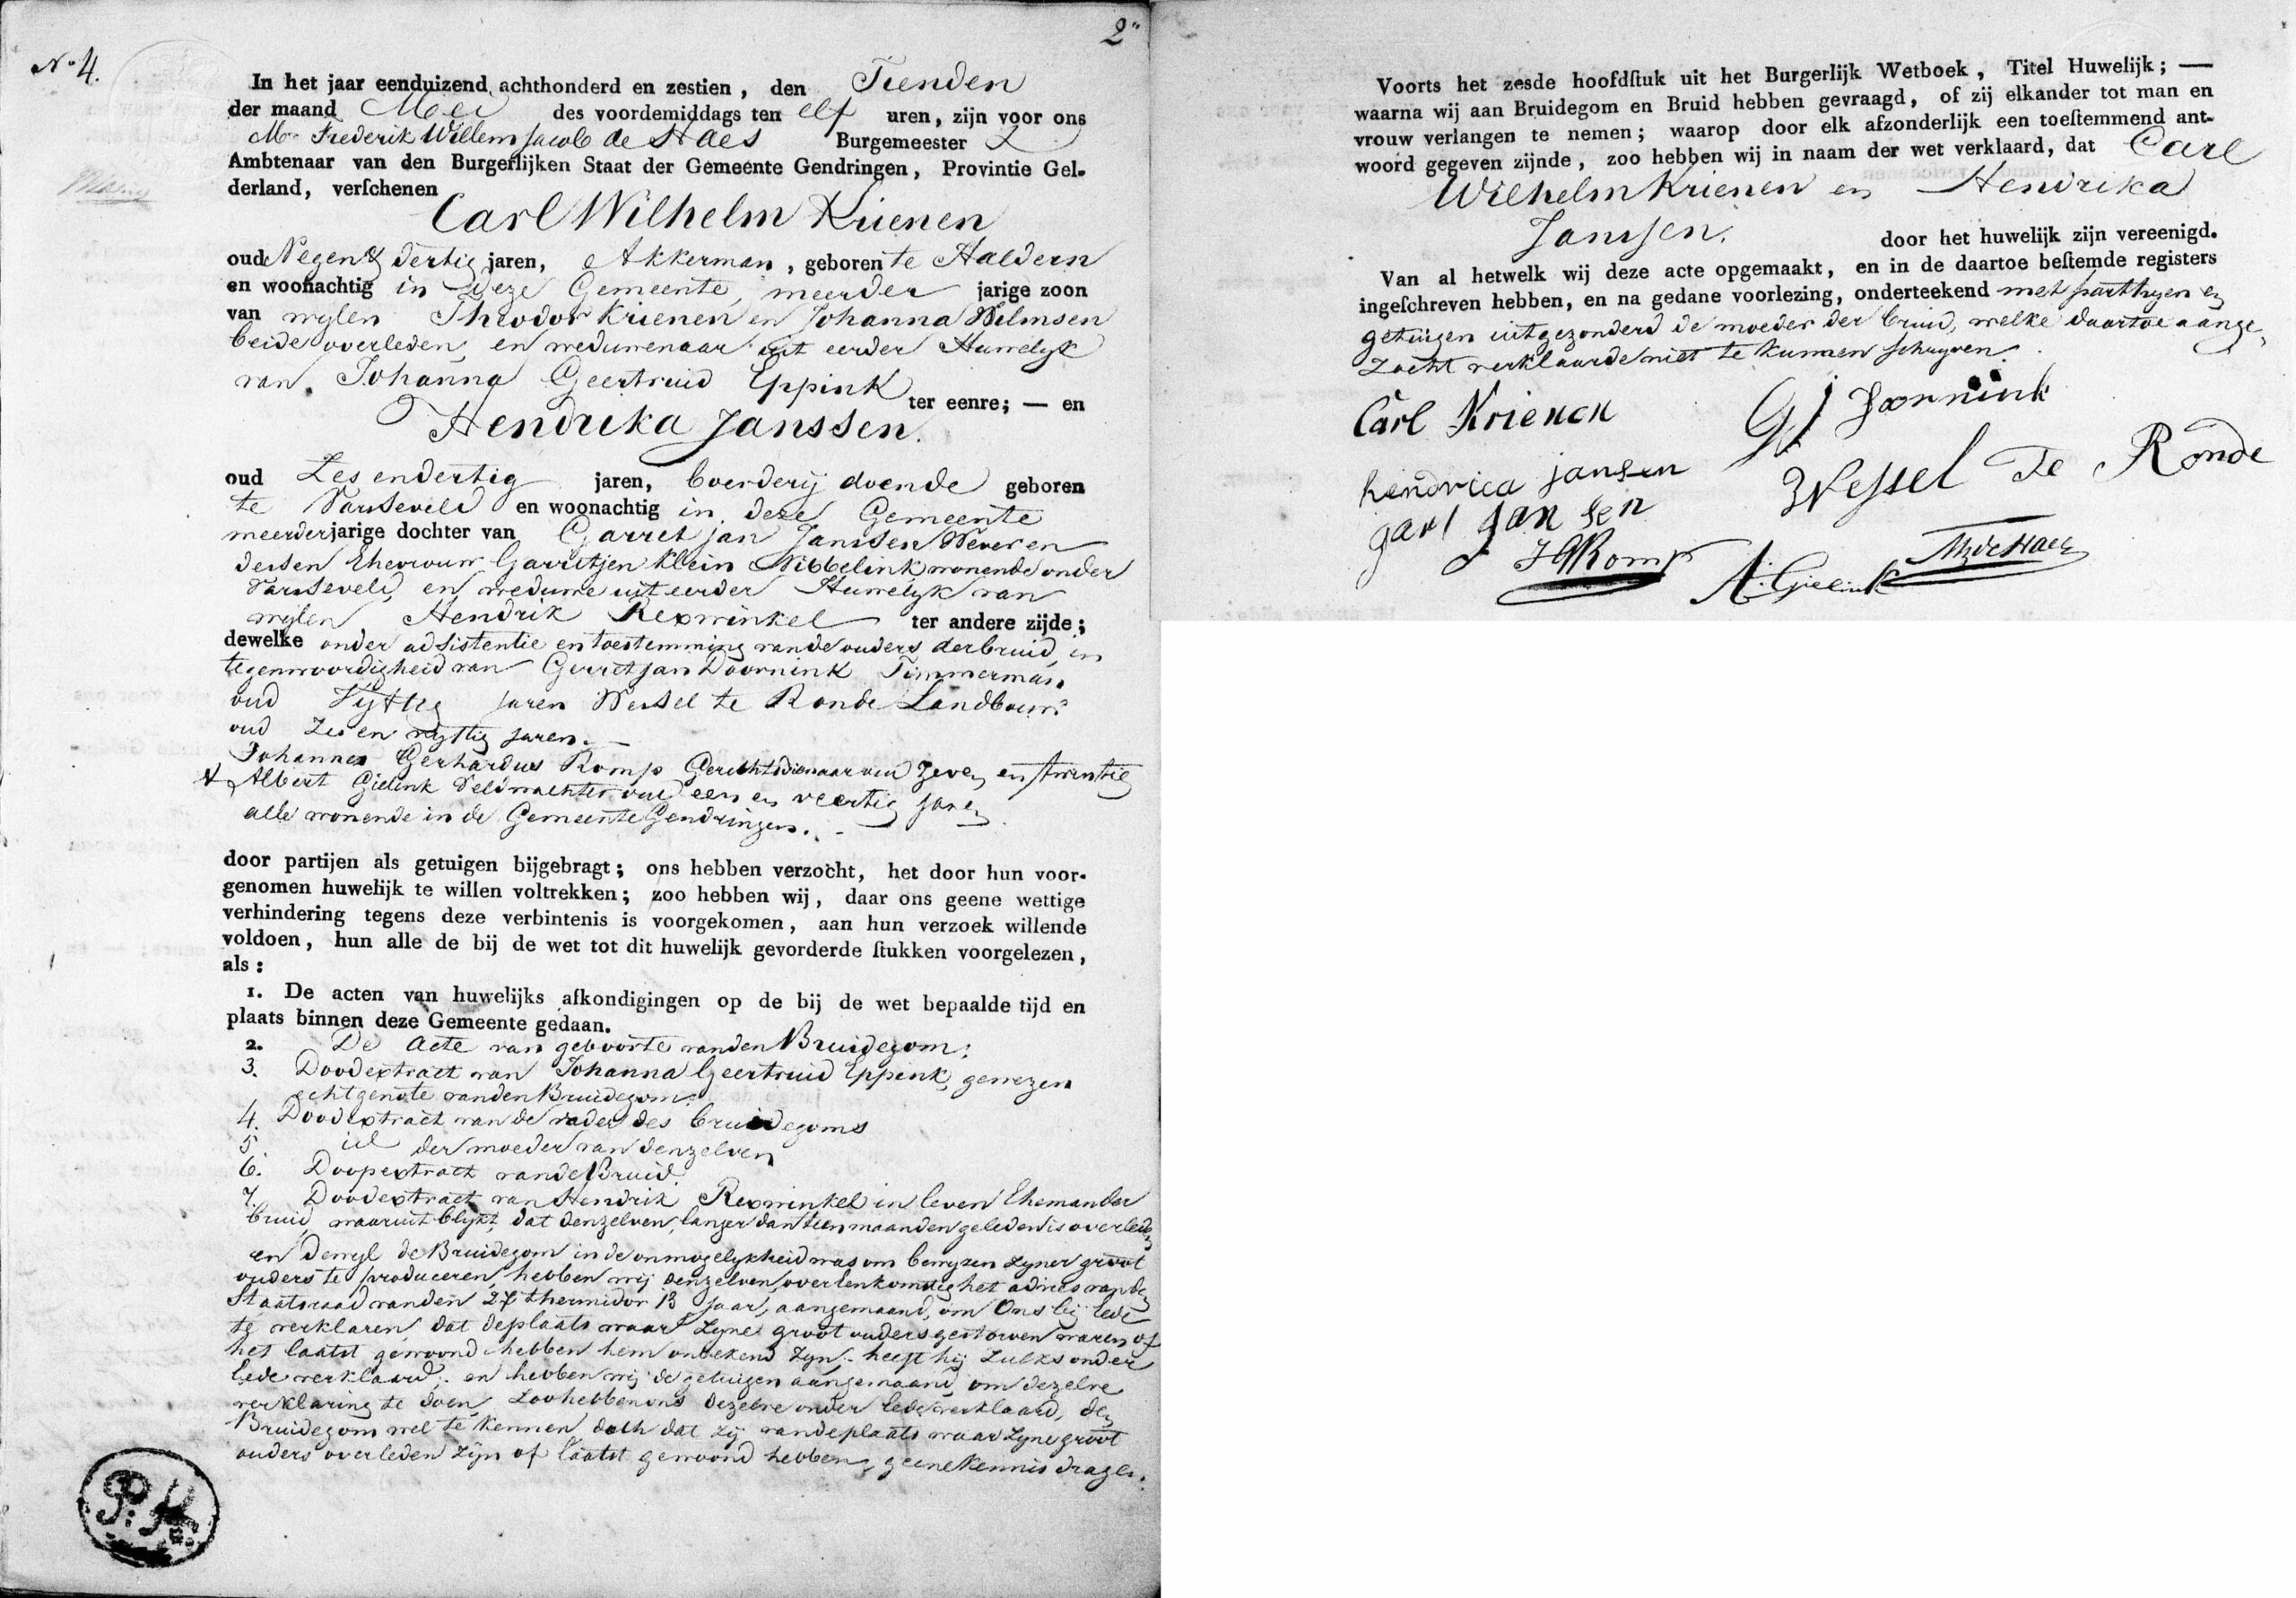 2
N° 4.
In het jaar eenduizend achthonderd en zestien, den Tienden
der maand Mei des voordemiddags ten elf uren, zijn voor ons
Mr Frederik Willem Jacob de Haes Burgemeester
Ambtenaar van den Burgerlijken Staat der Gemeente Gendringen, Provintie Gel-
derland, verſchenen
Carl Wilhelm Krienen
oud Negen & dertig jaren, Akkerman, geboren te Haldern
en woonachtig in deze Gemeente, meerder jarige zoon
van wylen Theodor Krienen en Johanna Wilmsen
beide overleden, en weduwenaar uit eerder Huwelyk
van Johanna Geertruid Eppink ter eenre; — en
Hendrika Janssen.
oud Zes endertig jaren, boerderij doende geboren
te Varsseveld en woonachtig in deze Gemeente
meerderjarige dochter van Garret jan Janssen Wever en
dessen Ehevrouw Garritjen Klein Nibbelink wonende onder
Varsseveld, en weduwe uit eerder Huwelyk van
wylen Hendrik Rexwinkel ter andere zijde;
dewelke onder adsistentie en toestemming van de ouders der bruid, in
tegenwoordigheid van Gerret Jan Doornink Timmerman
oud Vyftig jaren Wessel te Ronde Landbouwr
oud Zes en vyftig jaren. —
Johannes Gerhardus Romp Gerechtsdienaar oud zeven en twintig
& Albert Gielink Veldwachter oud een en veertig jaren
alle wonende in de Gemeente Gendringen. -
door partijen als getuigen bijgebragt; ons hebben verzocht, het door hun voor-
genomen huwelijk te willen voltrekken; zoo hebben wij, daar ons geene wettige
verhindering tegens deze verbintenis is voorgekomen, aan hun verzoek willende
voldoen, hun alle de bij de wet tot dit huwelijk gevorderde ſtukken voorgelezen,
als:
1. De acten van huwelijks afkondigingen op de bij de wet bepaalde tijd en
plaats binnen deze Gemeente gedaan.
2. De Acte van geboorte van den Bruidegom;
3. Doodextract van Johanna Geertruid Eppink, gewezen
echtgenote van den Bruidegom.
4. Doodextract van de vader des bruidegoms
5 id der moeder van denzelven
6. Doopextract van de Bruid.
7. Doodextract van Hendrik Rexwinkel in leven Eheman der
bruid, waaruit blykt, dat denzelven, langer dan tien maanden geleden is overleden
en Dewyl de Bruidegom in de onmogelykheid was om bewyzen zyner groot
ouders te produceren, hebben wij denzelven, overeenkomstig het advies van den
Staatsraad van den 27 thermidor 13 jaar, aangemaand, om Ons bij Eede
te verklaren, dat deplaats waar zyne groot ouders gestorven waren of
het laatst gewoond hebben hem onbekend zyn. heeft hij zulks onder
Eede verklaard; en hebben wij de getuigen aangemaand, om dezelve
verklaring te doen, zoo hebben ons dezelve onder Eede verklaard, den
Bruidegom wel te kennen, doch dat zij van deplaats waar zyne groot
ouders overleden zijn of laatst gewoond hebben, geene kennis dragen.
Voorts het zesde hoofdſtuk uit het Burgerlijk Wetboek, Titel Huwelijk; —
waarna wij aan Bruidegom en Bruid hebben gevraagd, of zij elkander tot man en
vrouw verlangen te nemen; waarop door elk afzonderlijk een toeſtemmend ant-
woord gegeven zijnde, zoo hebben wij in naam der wet verklaard, dat Carl
Wilhelm Krienen en Hendrika
Janssen. door het huwelijk zijn vereenigd.
Van al hetwelk wij deze acte opgemaakt, en in de daartoe beſtemde registers
ingeſchreven hebben, en na gedane voorlezing, onderteekend met parthyen en
getuigen uitgezonderd de moeder der bruid, welke daartoe aange-
zocht verklaarde niet te kunnen schryven.
Carl Krienen
GJ Doornink
hendrica jansen
Wessel Te Ronde
gart Jansen
JGRomp
A. Gielink